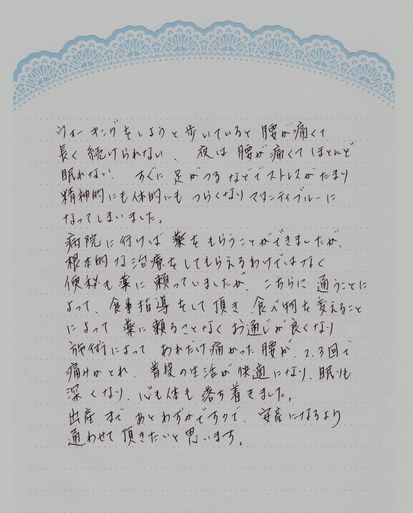 ウォーキングをしようと歩いていると 腰が痛くて
長く続けられない、夜は腰が痛くてほとんど
眠れない すぐに足がつるなどでストレスがたまり
精神的にも体的にもつらくなりマタニティブルーに
なってしまいました。
病院に行けば薬をもらうことができましたが、
根本的な治療をしてもらえるわけではなく
便秘も薬に頼っていましたが、こちらに通うことに
よって、食事指導をして頂き 食べ物を変えること
によって 薬に頼ることなくお通じが良くなり
施術によって あれだけ痛かった腰が、2.3回で
痛みがとれ、普段の生活が快適になり、眠りも
深くなり、心も体も落ち着きました。
出産まであとわずかですので、安産になるよう
通わせて頂きたいと思います。